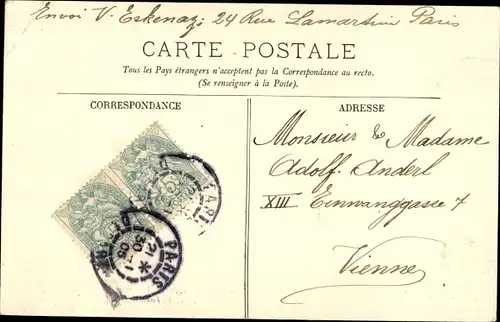 Envoi V. Eskenazi 24 Rue Lamartine Paris
CARTE POSTALE
Tous les Pays étrangers n'acceptent pas la Correspondance au recto.
(Se renseigner à la Poste).
CORRESPONDANCE
ADRESSE
Monsieur & Madame
Adolf. Anderl
XIII Einwanggasse 7
Vienne
PARIS
PARIS
21
30
05